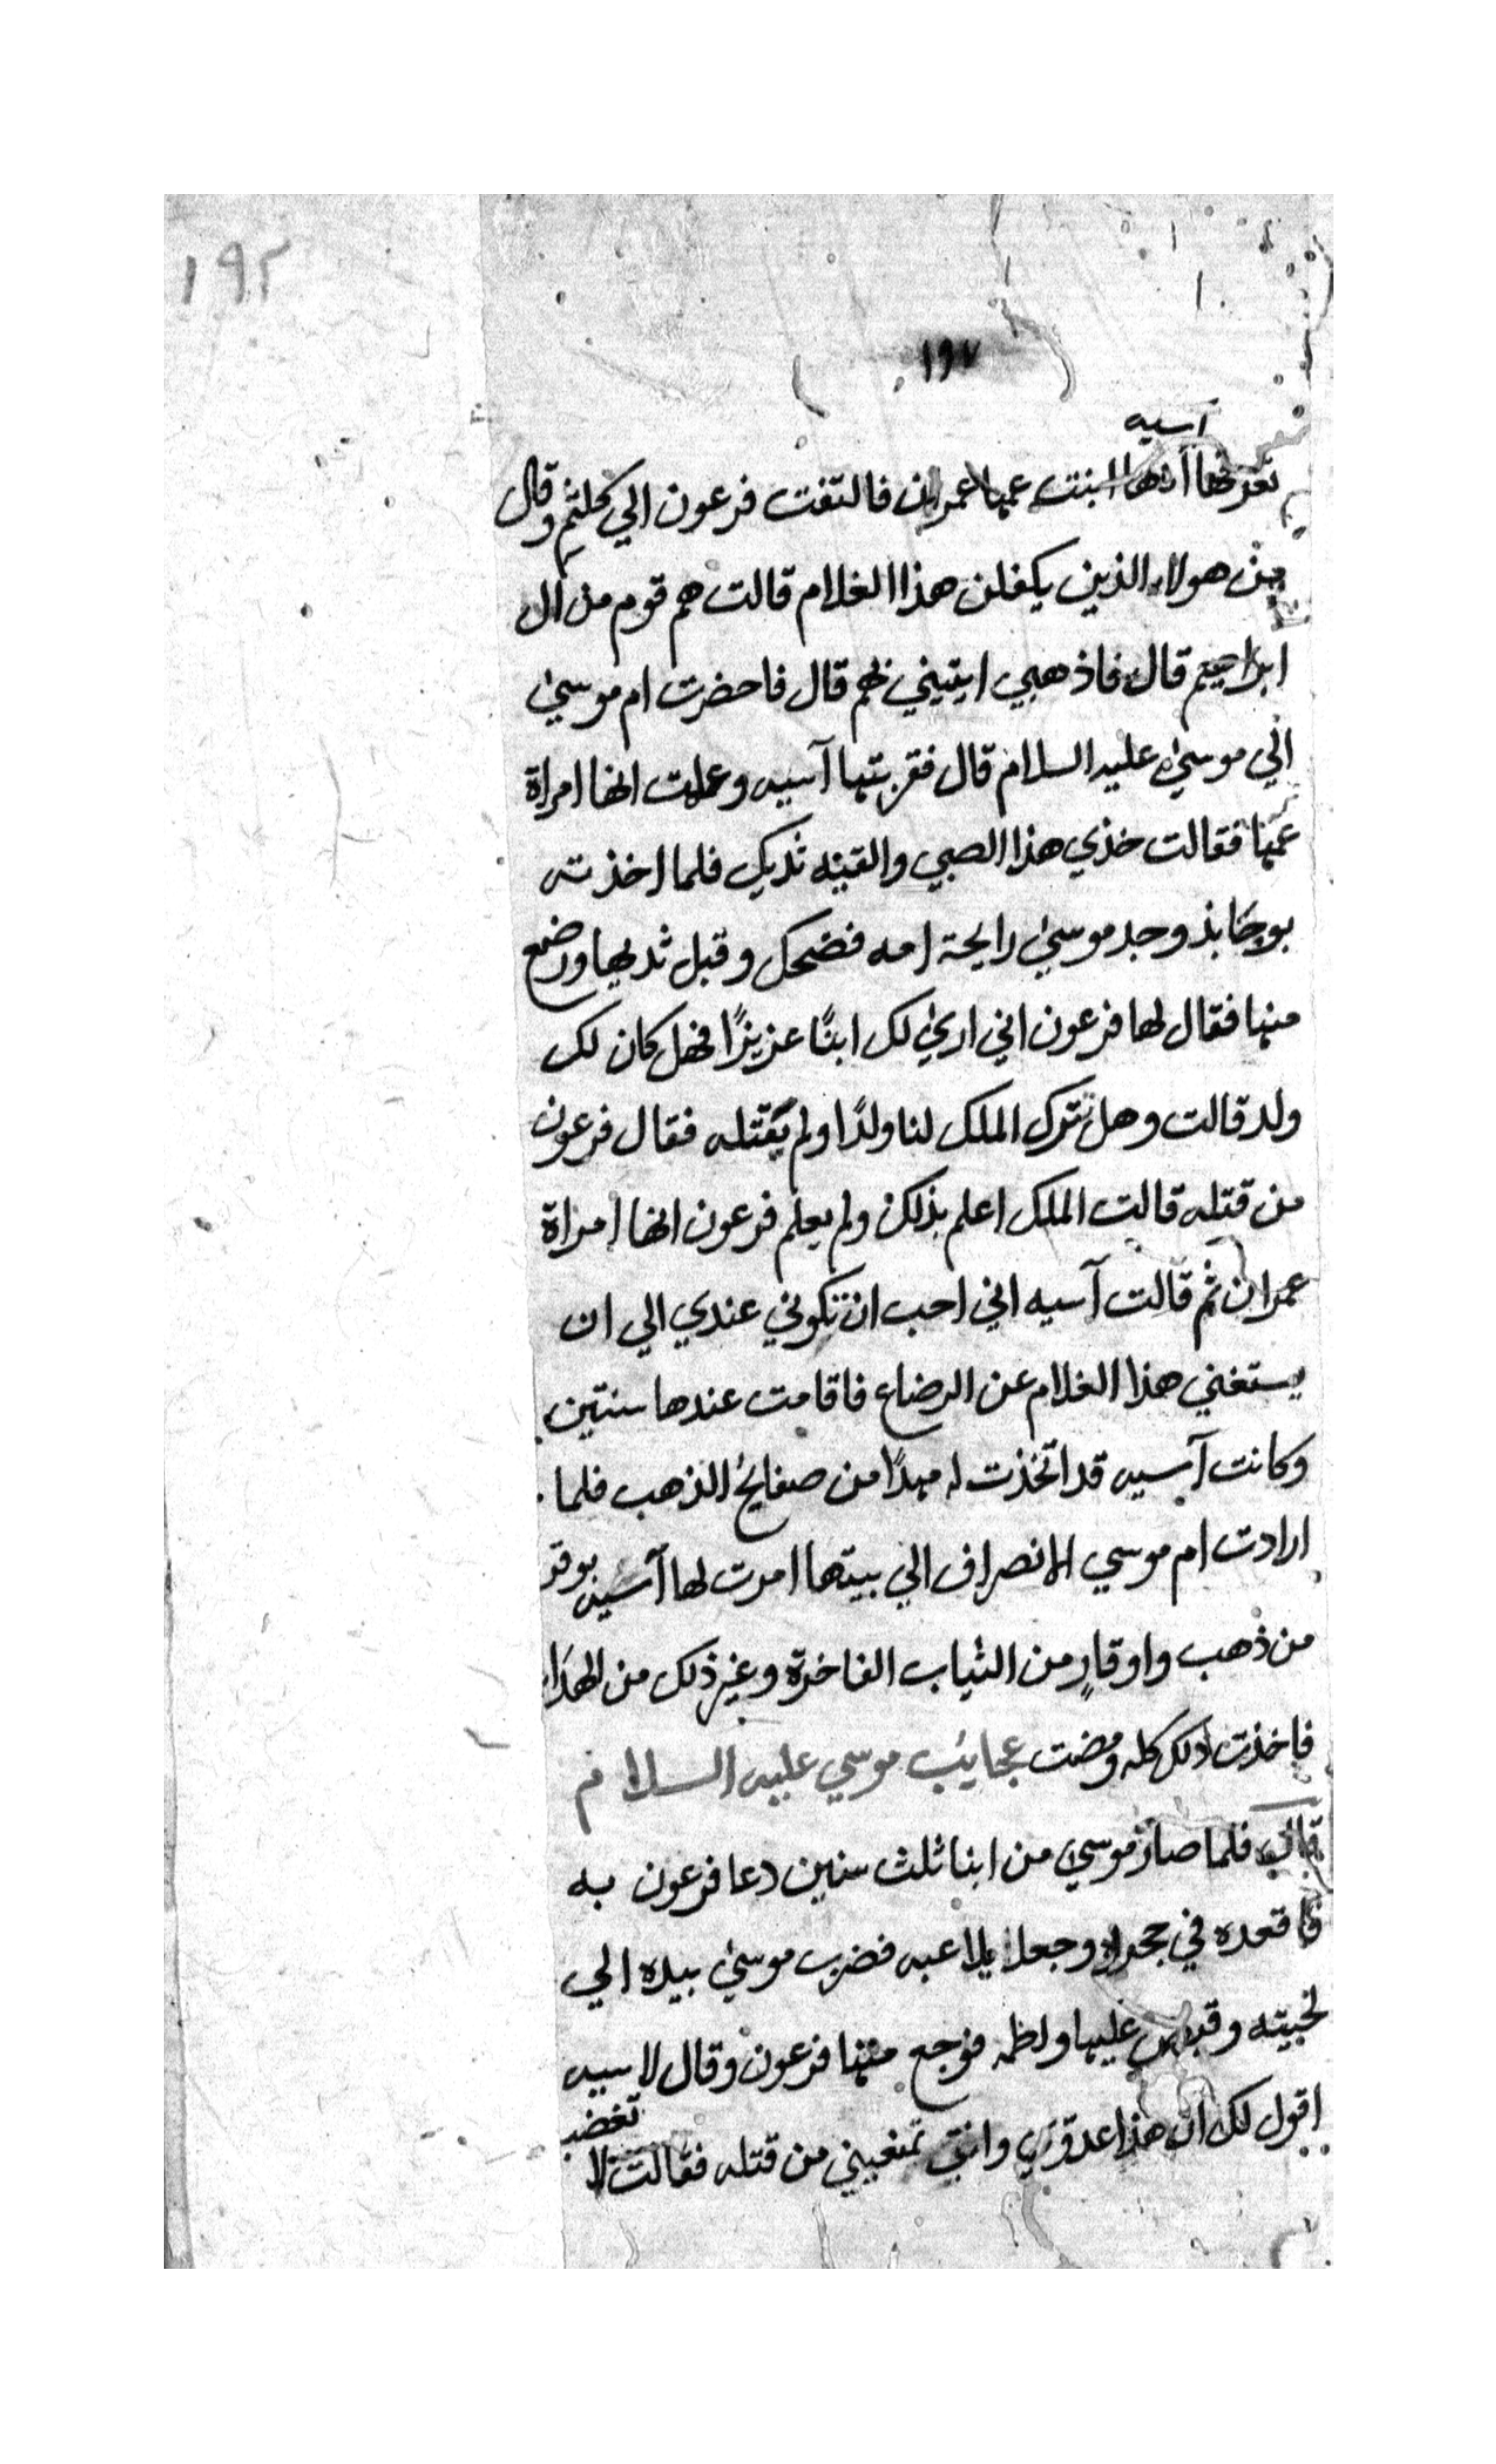 ١٩٢
١٩٧
آسيه
تعرفها انها ابنت عمها عمران فالتفت فرعون الي كلثم وقال
من هولاء الذين يكفلن هذا الغلام قالت هم قوم من ال
ابراهيم قال فاذهبي ايتيني بهم قال فاحضرت ام موسى
الي موسى عليه السلام قال فقربتها آسيه وعلمت انها امراة
عمها فقالت خذي هذا الصبي والقيه ثديك فلما اخذته
يوخابذ وجد موسى رايحة امه فضحك وقبل ثديها ورضع
منها فقال لها فرعون اني اري لك ابنًا عزيزًا فهل كان لك
ولد قالت وهل تترك الملك لنا ولدًا ولم يقتله فقال فرعون
من قتله قالت الملك اعلم بذلك ولم يعلم فرعون انها امراة
عمران ثم قالت آسيه اني احب ان تكوني عندي الي ان
يستغني هذا الغلام عن الرضاع فاقامت عندها سنتين
وكانت آسيه قد اتخذت له مهدًا من صفايح الذهب فلما
ارادت ام موسي الانصراف الي بيتها امرت لها آسيه بوقر
من ذهب واوقارٍ من الثياب الفاخرة وغير ذلك من الهدايا
فاخذت ذلك كله ومضت عجايب موسي عليه السلام
قال فلما صار موسى من ابنا ثلث سنين دعا فرعون به
فاقعده في حجره وجعل يلاعبه فضرب موسى بيده الي
لحيته وقبض عليها ولطمه فوجع منها فرعون وقال لاسيه
اقول لك ان هذا عدوي وانتي تمنعيني من قتله فقالت لا
تغضب